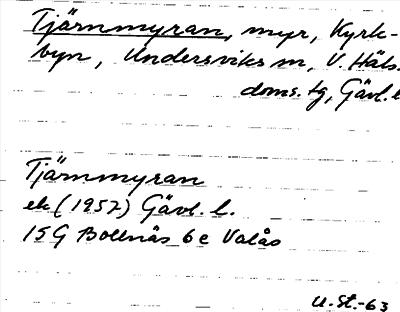 Tjärnmyran, myr, Kyrk-
byn, Undersviks sn, V. Häls.
doms. tg, Gävl. l
Tjärnmyran
ek (1957) Gävl. l.
15G Bollnäs 6c Valås
U. St.-63